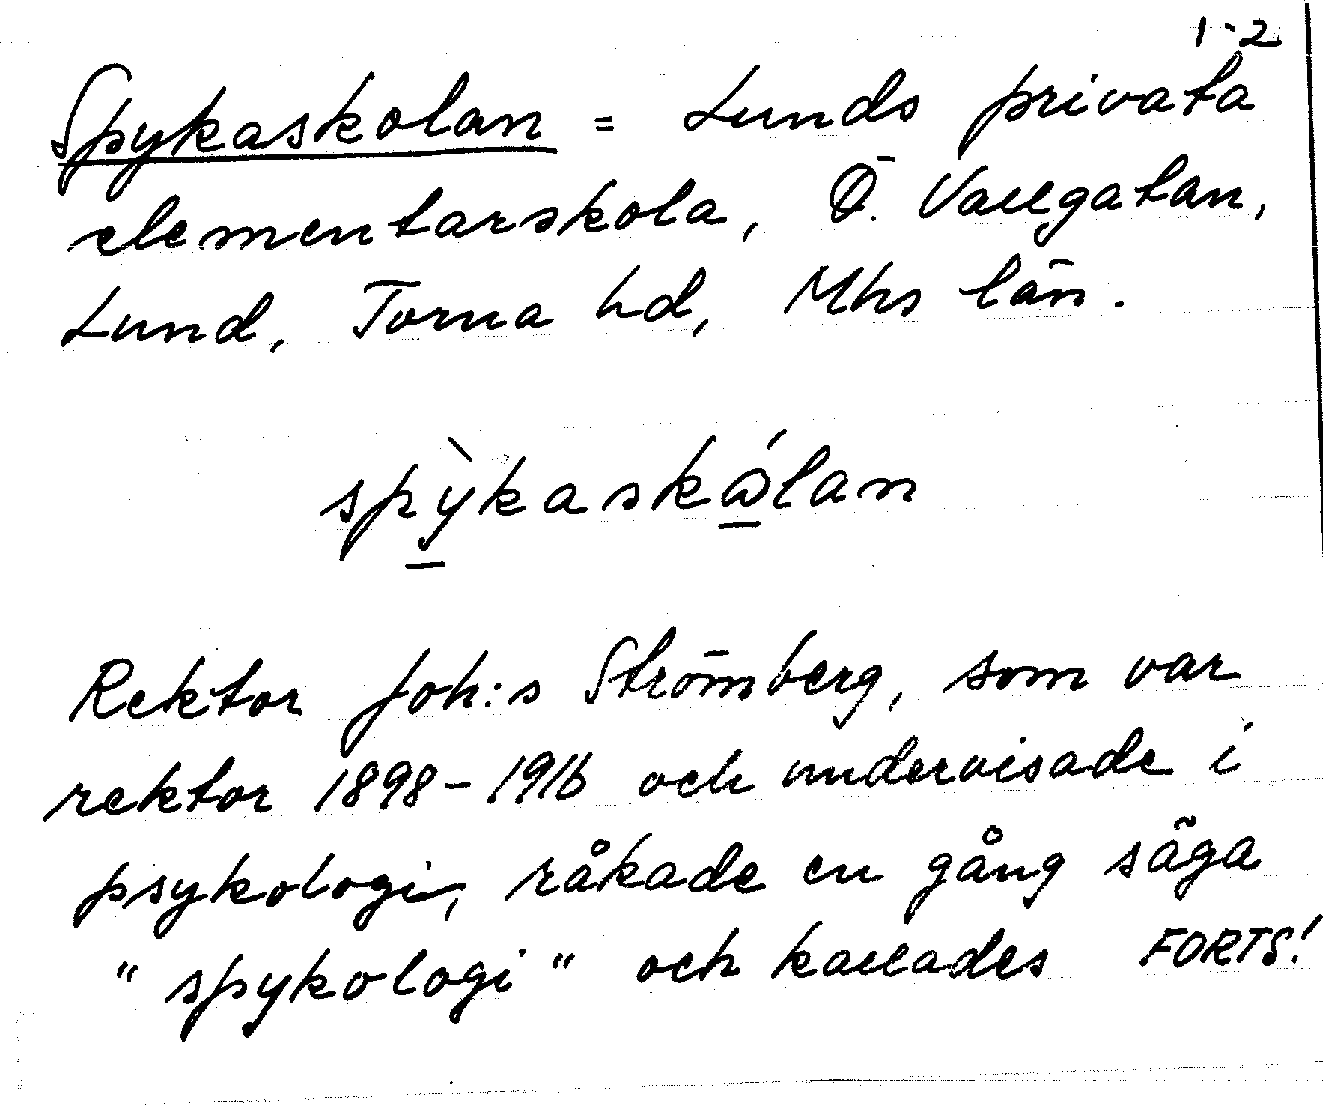 1-2
Spykaskolan = Lunds privata
elementarskola, Ö. Vallgatan,
Lund, Torna hd, Mhs län.
spỳkaskålan
Rektor Joh:s Strömberg, som var
rektor 1898-1916 och undervisade i
psykologi, råkade en gång säga
"spykologi" och kallades FORTS!